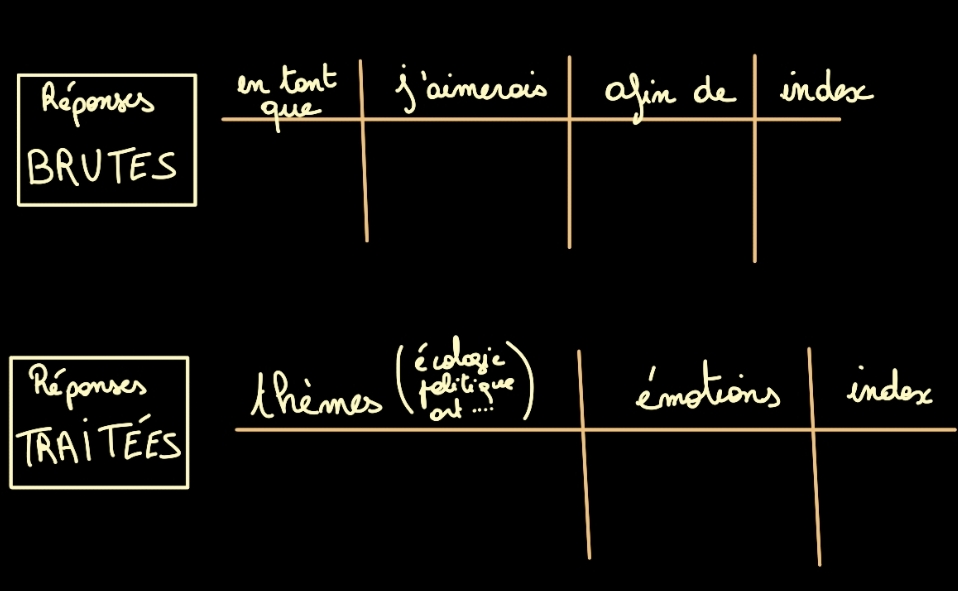 Réponses
BRUTES
en tant
que
j'aimerais
afin de
index
Réponses
TRAITÉES
thèmes
(écologie
politique
art ....)
émotions
index